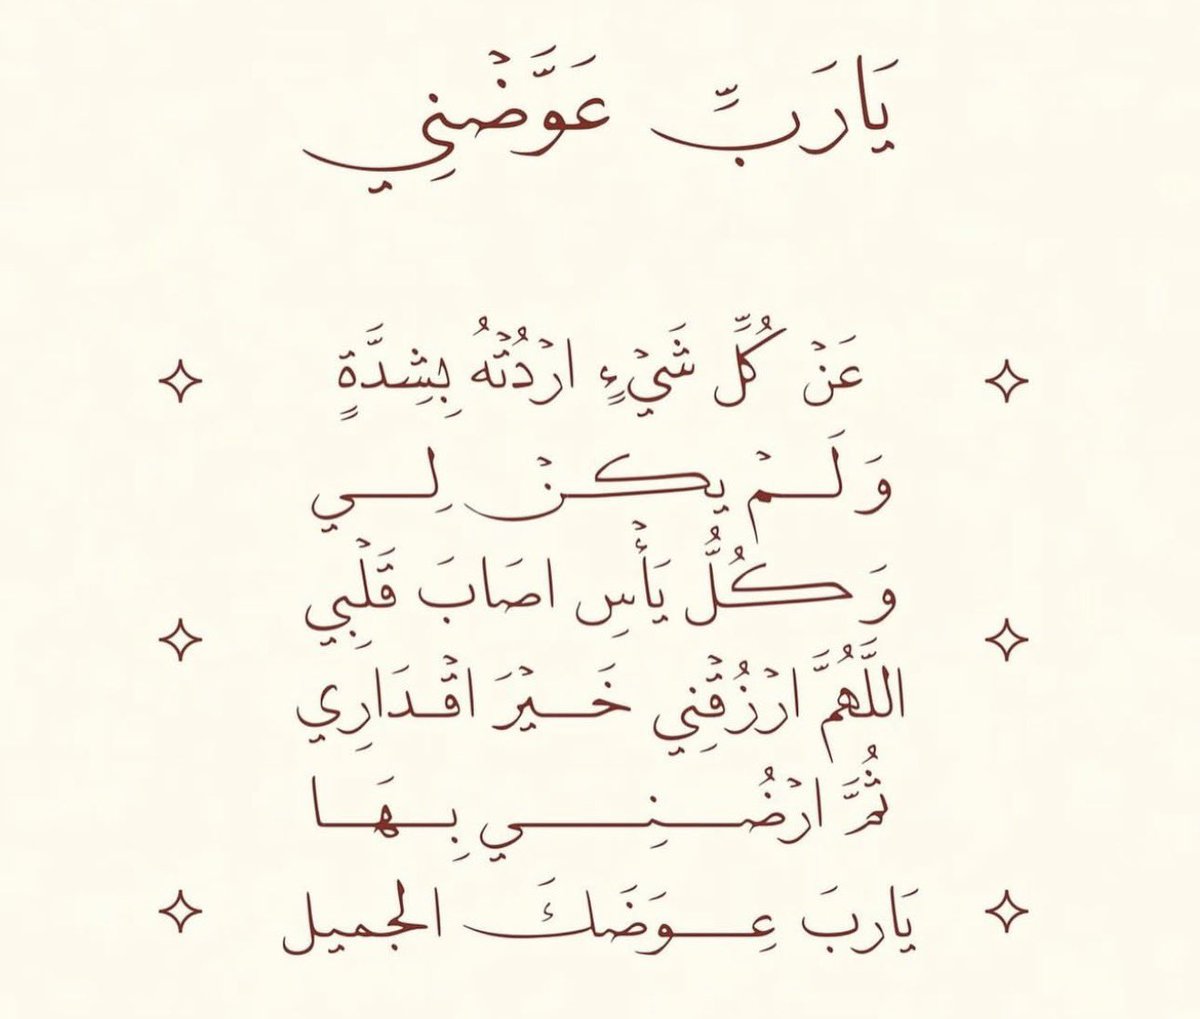 يَارَبِّ عَوَّضْنِي
عَنْ كُلِّ شَيْءٍ ارْدْتُهُ بِشِدَّةٍ
وَلَمْ يكنْ لِي
وَكُلُّ يَأْسِ اصَابَ قَلْبِي
اللَّهُمَّ ارْزُقْنِي خَيْرَ اقْدَارِي
ثُمَّ ارْضُنِي بِهَا
يَاربَ عِوَضَكَ الجميل